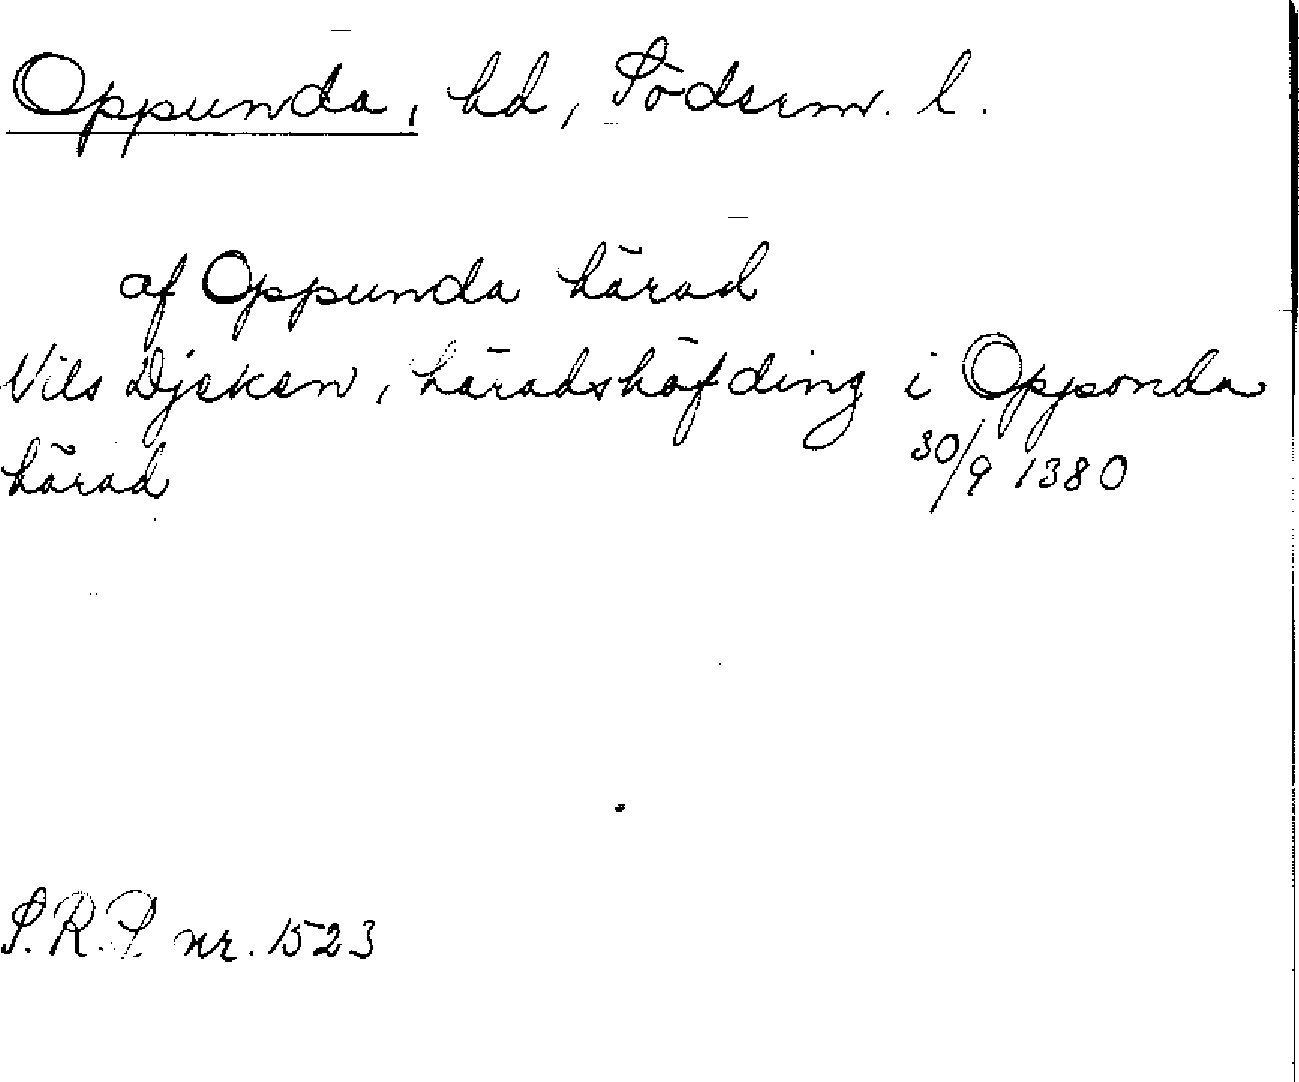 Oppunda, hd, Söderm. l.
af Oppunda härad
Nils Djeken, häradshöfding i Opponda
härad 30/9 1380
S.R.P. nr. 1523